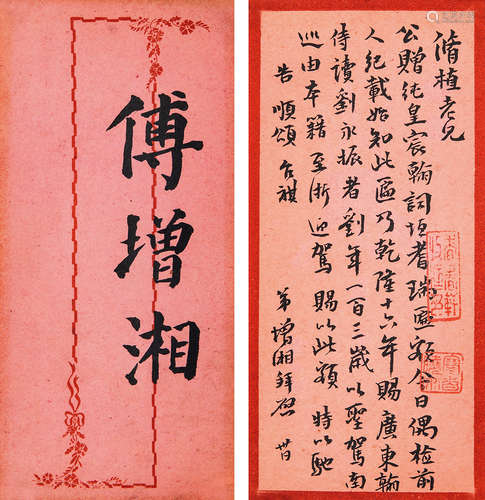 傅增湘
脩植老兄
公贈純皇宸翰詞垣耆瑞匾額今日偶檢前
人紀載始知此區乃乾隆十六年賜廣東翰
侍讀劉永振者劉年一百三歲以聖駕南
巡由本籍至浙迎駕賜以此額特以馳
告順頌台祺
弟增湘拜啓